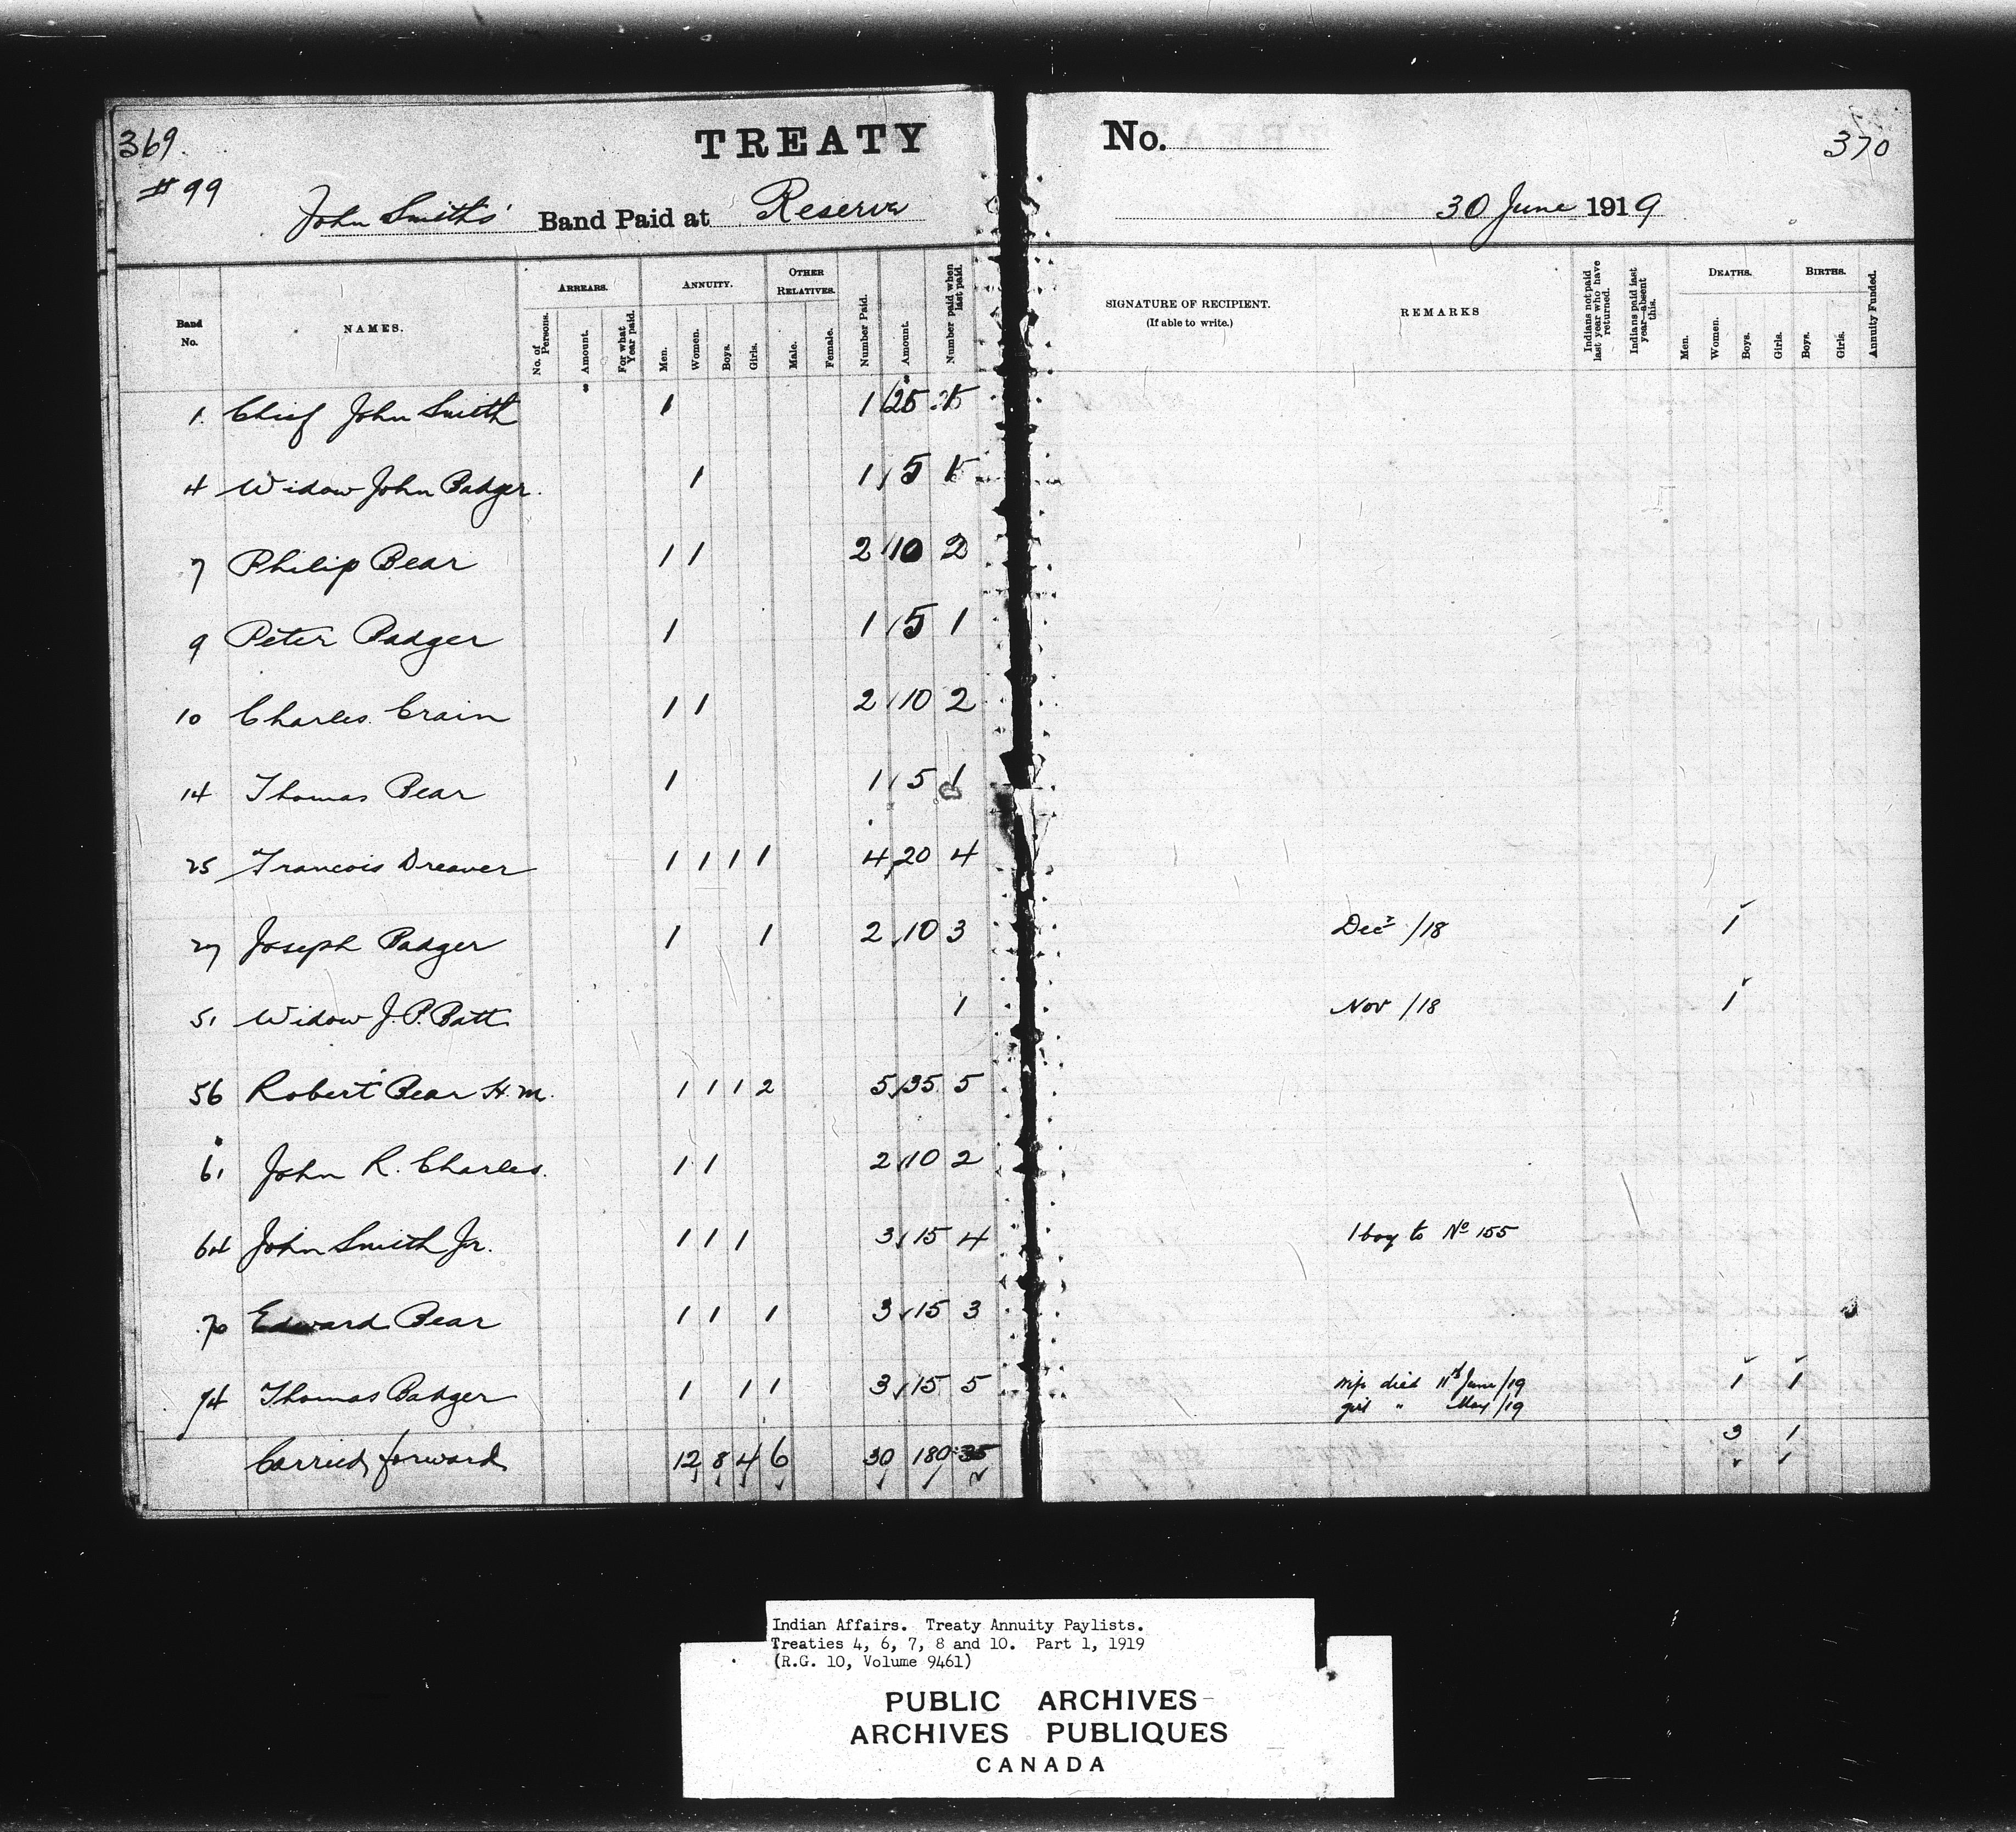 369
# 99
TREATY No.
370
John Smiths' Band Paid at Reserve 30 June 1919
Band No.
NAMES.
ARREARS.
No. of Persons.
Amount.
For what Year paid.
ANNUITY.
Men.
Women.
Boys.
Girls.
OTHER RELATIVES.
Male.
Female.
Number Paid.
Amount.
Number paid when last paid.
SIGNATURE OF RECIPIENT.
(If able to write.)
REMARKS
Indians not paid last year who have returned.
Indians paid last year—absent this.
DEATHS.
Men.
Women.
Boys.
Girls.
BIRTHS.
Boys.
Girls.
Annuity Funded.
1. Chief John Smith 1 1 25 1
4 Widow John Badger. 1 1 5 1
7 Philip Bear 1 1 2 10 2
9 Peter Badger 1 1 5 1
10 Charles Crain 1 1 2 10 2
14 Thomas Bear 1 1 5 1
25 Francois Dreaver 1 1 1 1 4 20 4
27 Joseph Badger 1 1 2 10 3 Decr /18 1
51 Widow J. P. Batt 1 Nov /18 1
56 Robert Bear H.M. 1 1 1 2 5 35 5
61 John R. Charles. 1 1 2 10 2
64 John Smith Jr. 1 1 1 3 15 4 1 boy to No 155
70 Edward Bear 1 1 1 3 15 3
74 Thomas Badger 1 1 1 3 15 5 wife died 11th June/19 1 1
girl " May/19
Carried forward 12 8 4 6 30 180 35 3 1
Indian Affairs. Treaty Annuity Paylists.
Treaties 4, 6, 7, 8 and 10. Part 1, 1919
(R.G. 10, Volume 9461)
PUBLIC ARCHIVES
ARCHIVES PUBLIQUES
CANADA